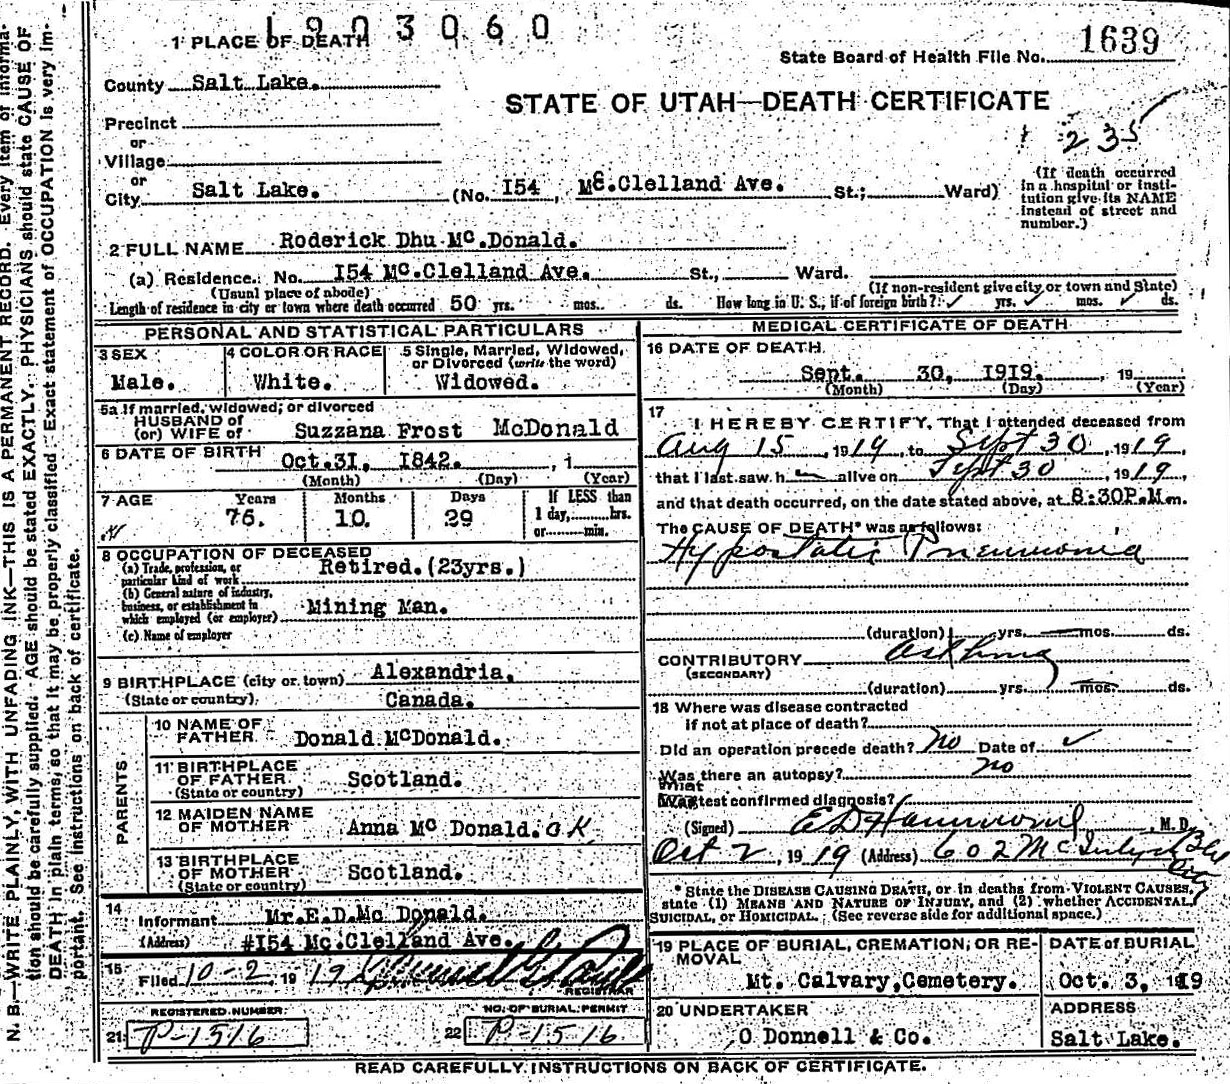 1903060
1 PLACE OF DEATH
State Board of Health File No. 1639
County Salt Lake.
STATE OF UTAH—DEATH CERTIFICATE
Precinct
235
or
Village
or
City Salt Lake. (No. I54, Mc.Clelland Ave. St.; Ward)
(If death occurred
in a hospital or insti-
tution give its NAME
instead of street and
number.)
2 FULL NAME Roderick Dhu Mc.Donald.
(a) Residence. No. I54 Mc.Clelland Ave. St., Ward.
(Usual place of abode) (If non-resident give city or town and State)
Length of residence in city or town where death occurred 50 yrs. mos. ds. How long in U. S., if of foreign birth? ✓ yrs. ✓ mos. ✓ ds.
PERSONAL AND STATISTICAL PARTICULARS
3 SEX
Male.
4 COLOR OR RACE
White.
5 Single, Married, Widowed,
or Divorced (write the word)
Widowed.
5a If married, widowed, or divorced
HUSBAND of
(or) WIFE of Suzzana Frost McDonald
6 DATE OF BIRTH Oct.31, 1842. , 1
(Month) (Day) (Year)
7 AGE Years Months Days If LESS than
76. 10. 29 1 day,.......hrs.
or.........min.
8 OCCUPATION OF DECEASED
(a) Trade, profession, or
particular kind of work Retired.(23yrs.)
(b) General nature of industry,
business, or establishment in
which employed (or employer) Mining Man.
(c) Name of employer
9 BIRTHPLACE (city or town) Alexandria.
(State or country) Canada.
PARENTS
10 NAME OF
FATHER Donald McDonald.
11 BIRTHPLACE
OF FATHER Scotland.
(State or country)
12 MAIDEN NAME
OF MOTHER Anna Mc Donald. OK
13 BIRTHPLACE
OF MOTHER Scotland.
(State or country)
14
Informant Mr.E.D.Mc Donald.
(Address) #I54 Mc.Clelland Ave.
15
Filed 10-2, 1919
REGISTRAR
REGISTERED NUMBER
21 P-1516
NO. OF BURIAL PERMIT
22 P-1516
MEDICAL CERTIFICATE OF DEATH
16 DATE OF DEATH
Sept. 30, 1919. , 19
(Month) (Day) (Year)
17 I HEREBY CERTIFY, That I attended deceased from
Aug 15, 1919, to Sept 30, 1919,
that I last saw h alive on Sept 30, 1919,
and that death occurred, on the date stated above, at 8:30P.M.m.
The CAUSE OF DEATH* was as follows:
Hypostatic Pneumonia
(duration) yrs. mos. ds.
CONTRIBUTORY Asthma
(SECONDARY)
(duration) yrs. mos. ds.
18 Where was disease contracted
if not at place of death?
Did an operation precede death? No Date of ✓
Was there an autopsy? no
What
test confirmed diagnosis?
(Signed) E D Hammond, M.D.
Oct 2, 1919 (Address) 602 McIntyre Bld
City
* State the DISEASE CAUSING DEATH, or in deaths from VIOLENT CAUSES,
state (1) MEANS AND NATURE OF INJURY, and (2) whether ACCIDENTAL,
SUICIDAL, or HOMICIDAL. (See reverse side for additional space.)
19 PLACE OF BURIAL, CREMATION, OR RE-
MOVAL
Mt. Calvary,Cemetery.
DATE of BURIAL
Oct. 3, 1919
20 UNDERTAKER
O Donnell & Co.
ADDRESS
Salt Lake.
READ CAREFULLY INSTRUCTIONS ON BACK OF CERTIFICATE.
N. B.—WRITE PLAINLY, WITH UNFADING INK—THIS IS A PERMANENT RECORD. Every item of informa-
tion should be carefully supplied. AGE should be stated EXACTLY. PHYSICIANS should state CAUSE OF
DEATH in plain terms, so that it may be properly classified. Exact statement of OCCUPATION is very im-
portant. See instructions on back of certificate.